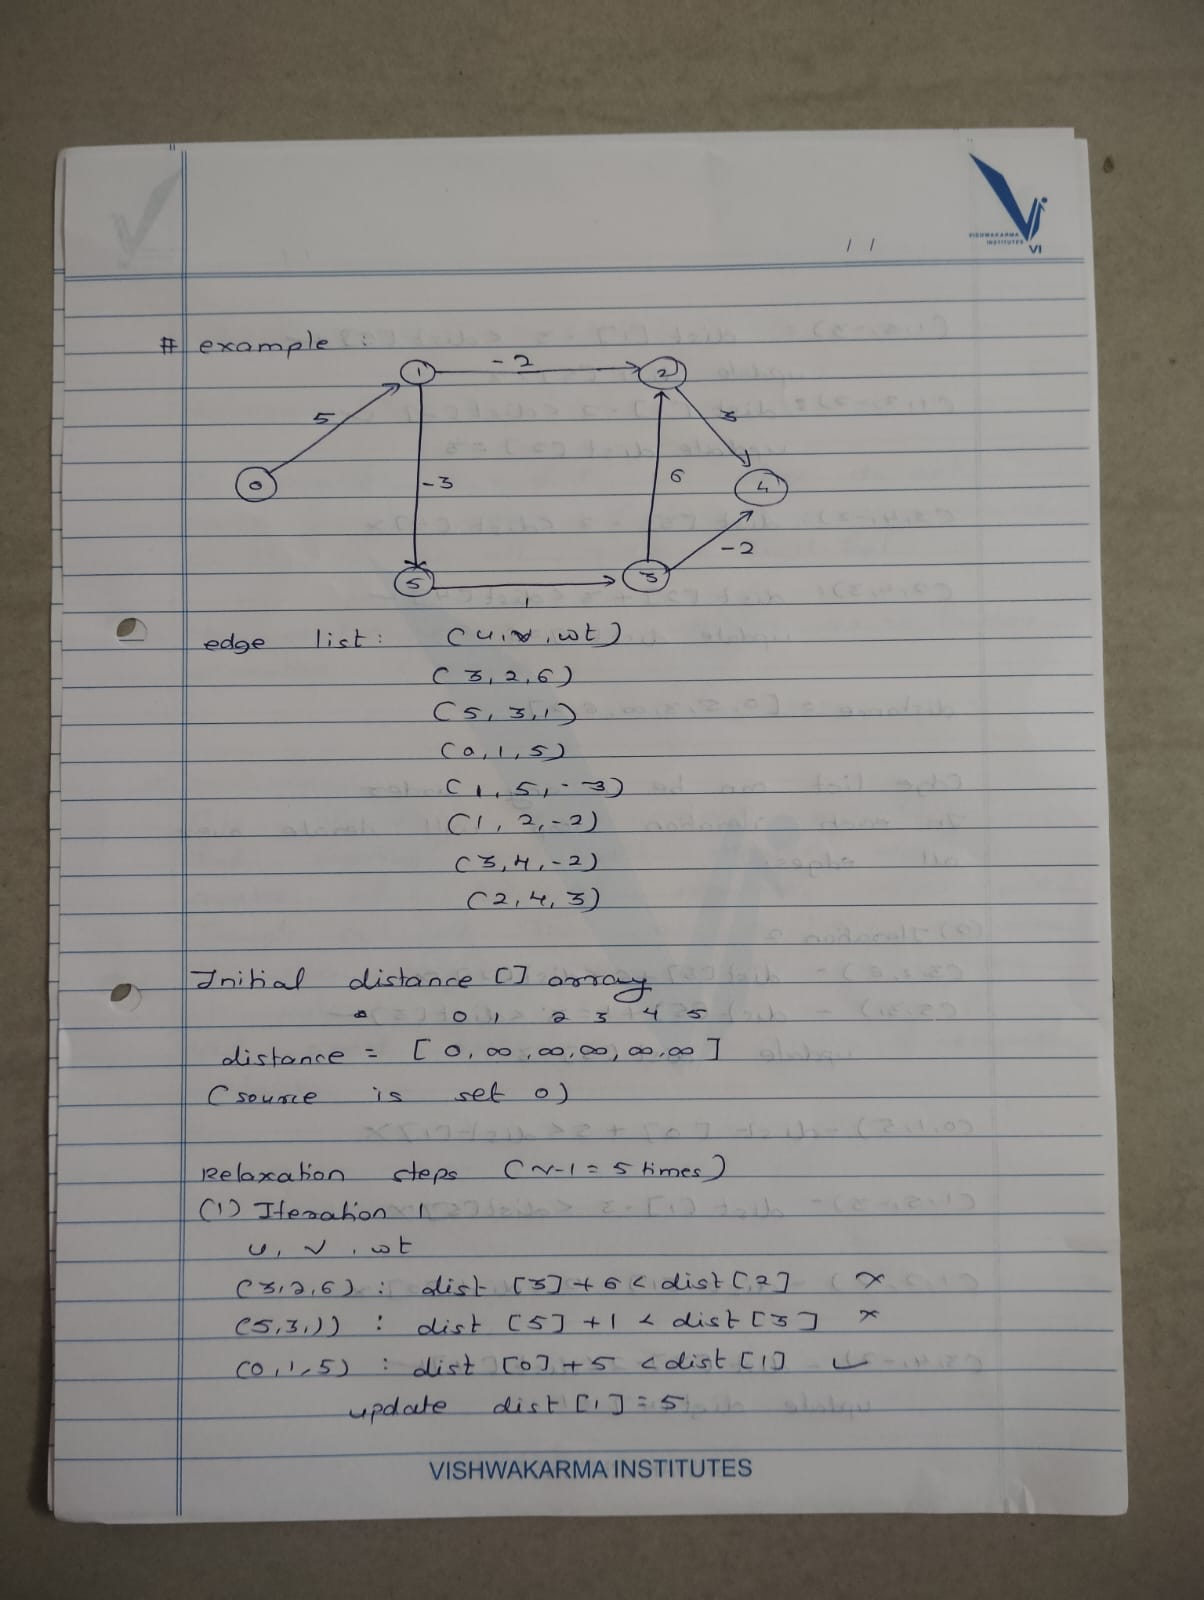 VISHWAKARMA
INSTITUTES
VI
/ /
# example :
1
-2
2
5
3
0
-3
6
4
-2
5
3
1
edge list : (u, v, wt)
(3, 2, 6)
(5, 3, 1)
(0, 1, 5)
(1, 5, -3)
(1, 2, -2)
(3, 4, -2)
(2, 4, 3)
Initial distance [] array
0 1 2 3 4 5
distance = [0, ∞, ∞, ∞, ∞, ∞]
(source is set 0)
Relaxation steps (v-1 = 5 times)
(1) Iteration 1
u, v, wt
(3, 2, 6) : dist [3] + 6 < dist [2] ×
(5, 3, 1) : dist [5] + 1 < dist [3] ×
(0, 1, 5) : dist [0] + 5 < dist [1] ✓
update dist [1] = 5
VISHWAKARMA INSTITUTES